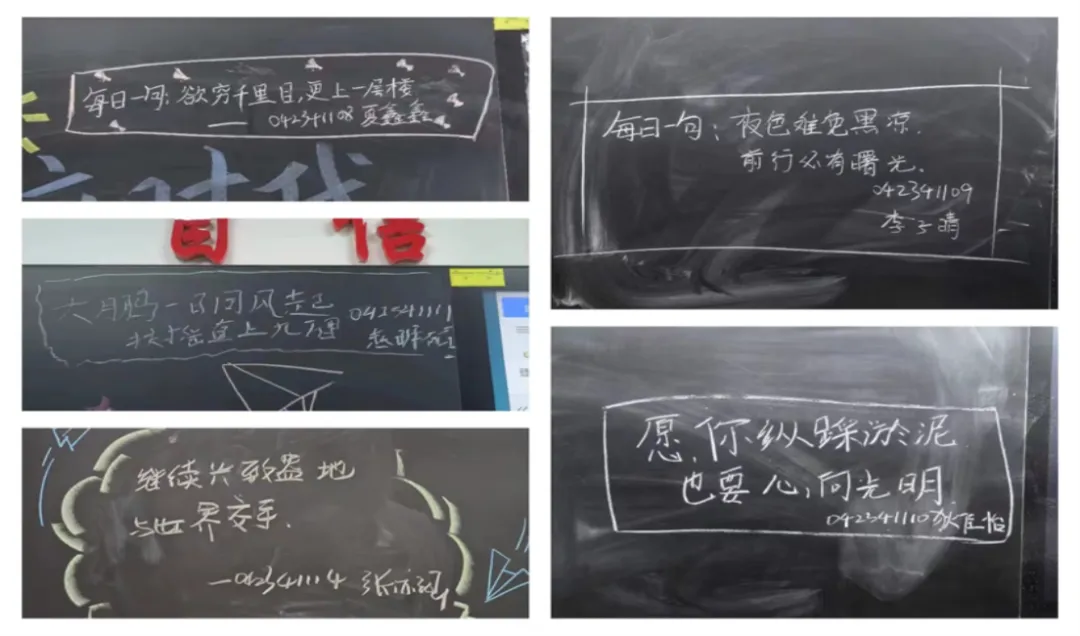 每日一句:欲穷千里目,更上一层楼
——042341108 夏鑫鑫
时代
自信
大鹏一日同风起
扶摇直上九万里
继续兴致盎然地
与世界交手.
—042341114
每日一句:夜色难免黑凉.
前行必有曙光.
042341109
李子晴
愿,你纵踩淤泥
也要心向光明
042341110狄佳怡